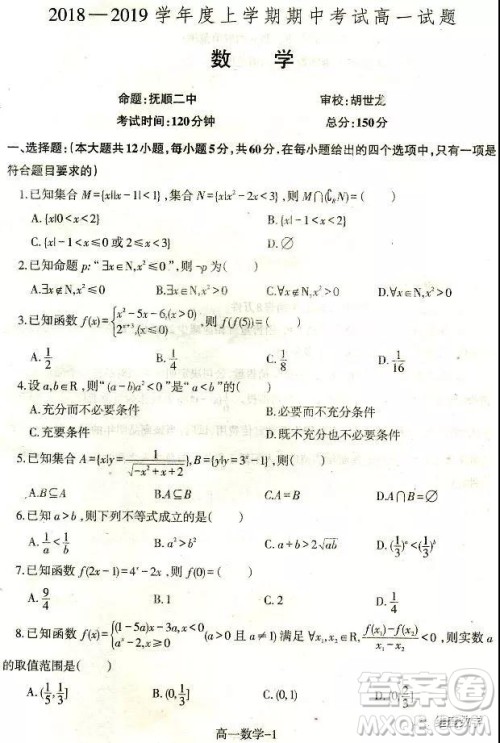 2018—2019学年度上学期期中考试高一试题
数 学
命题:抚顺二中 审校:胡世龙
考试时间:120分钟 总分:150分
一、选择题:(本大题共12小题,每小题5分,共60分,在每小题给出的四个选项中,只有一项是
符合题目要求的)
1.已知集合M={x||x-1|<1},集合N={x|x²-2x<3},则M∩(∁RN)=( )
A.{x|0<x<2} B.{x|-1<x<2}
C.{x|-1<x≤0或2≤x<3} D.∅
2.已知命题p:“∃x∈N,x²≤0”,则¬p为( )
A.∃x∈N,x²≤0 B.∃x∈N,x²>0 C.∀x∈N,x²>0 D.∀x∈N,x²≤0
3.已知函数f(x)={x²-5x-6,(x>0) 2^(x+3),(x≤0),则f(f(5))=( )
A.1/2 B.1/4 C.1/8 D.1/16
4.设a,b∈R,则“(a-b)a²<0”是“a<b”的( )
A.充分而不必要条件 B.必要而不充分条件
C.充要条件 D.既不充分也不必要条件
5.已知集合A={x|y=1/√(-x²+x+2)},B={y|y=3^x-1}( )
A.B⊆A B.A⊆B C.A=B D.A∩B=∅
6.已知a>b,则下列不等式成立的是( )
A.1/a<1/b B.a²>b² C.a+b>2√ab D.(1/3)^a<(1/3)^b
7.已知函数f(2x-1)=4^x-2x,则f(0)=( )
A.9/4 B.7/4 C.1 D.0
8.已知函数f(x)={(1-5a)x-3a, a^x-2, (a>0且a≠1)满足∀x₁,x₂∈R,(f(x₁)-f(x₂))/(x₁-x₂)<0,则实数a
的取值范围是( )
A.(1/5,1] B.(1/5,1/3] C.(0,1) D.(0,2/3]
高一数学-1
答案圈